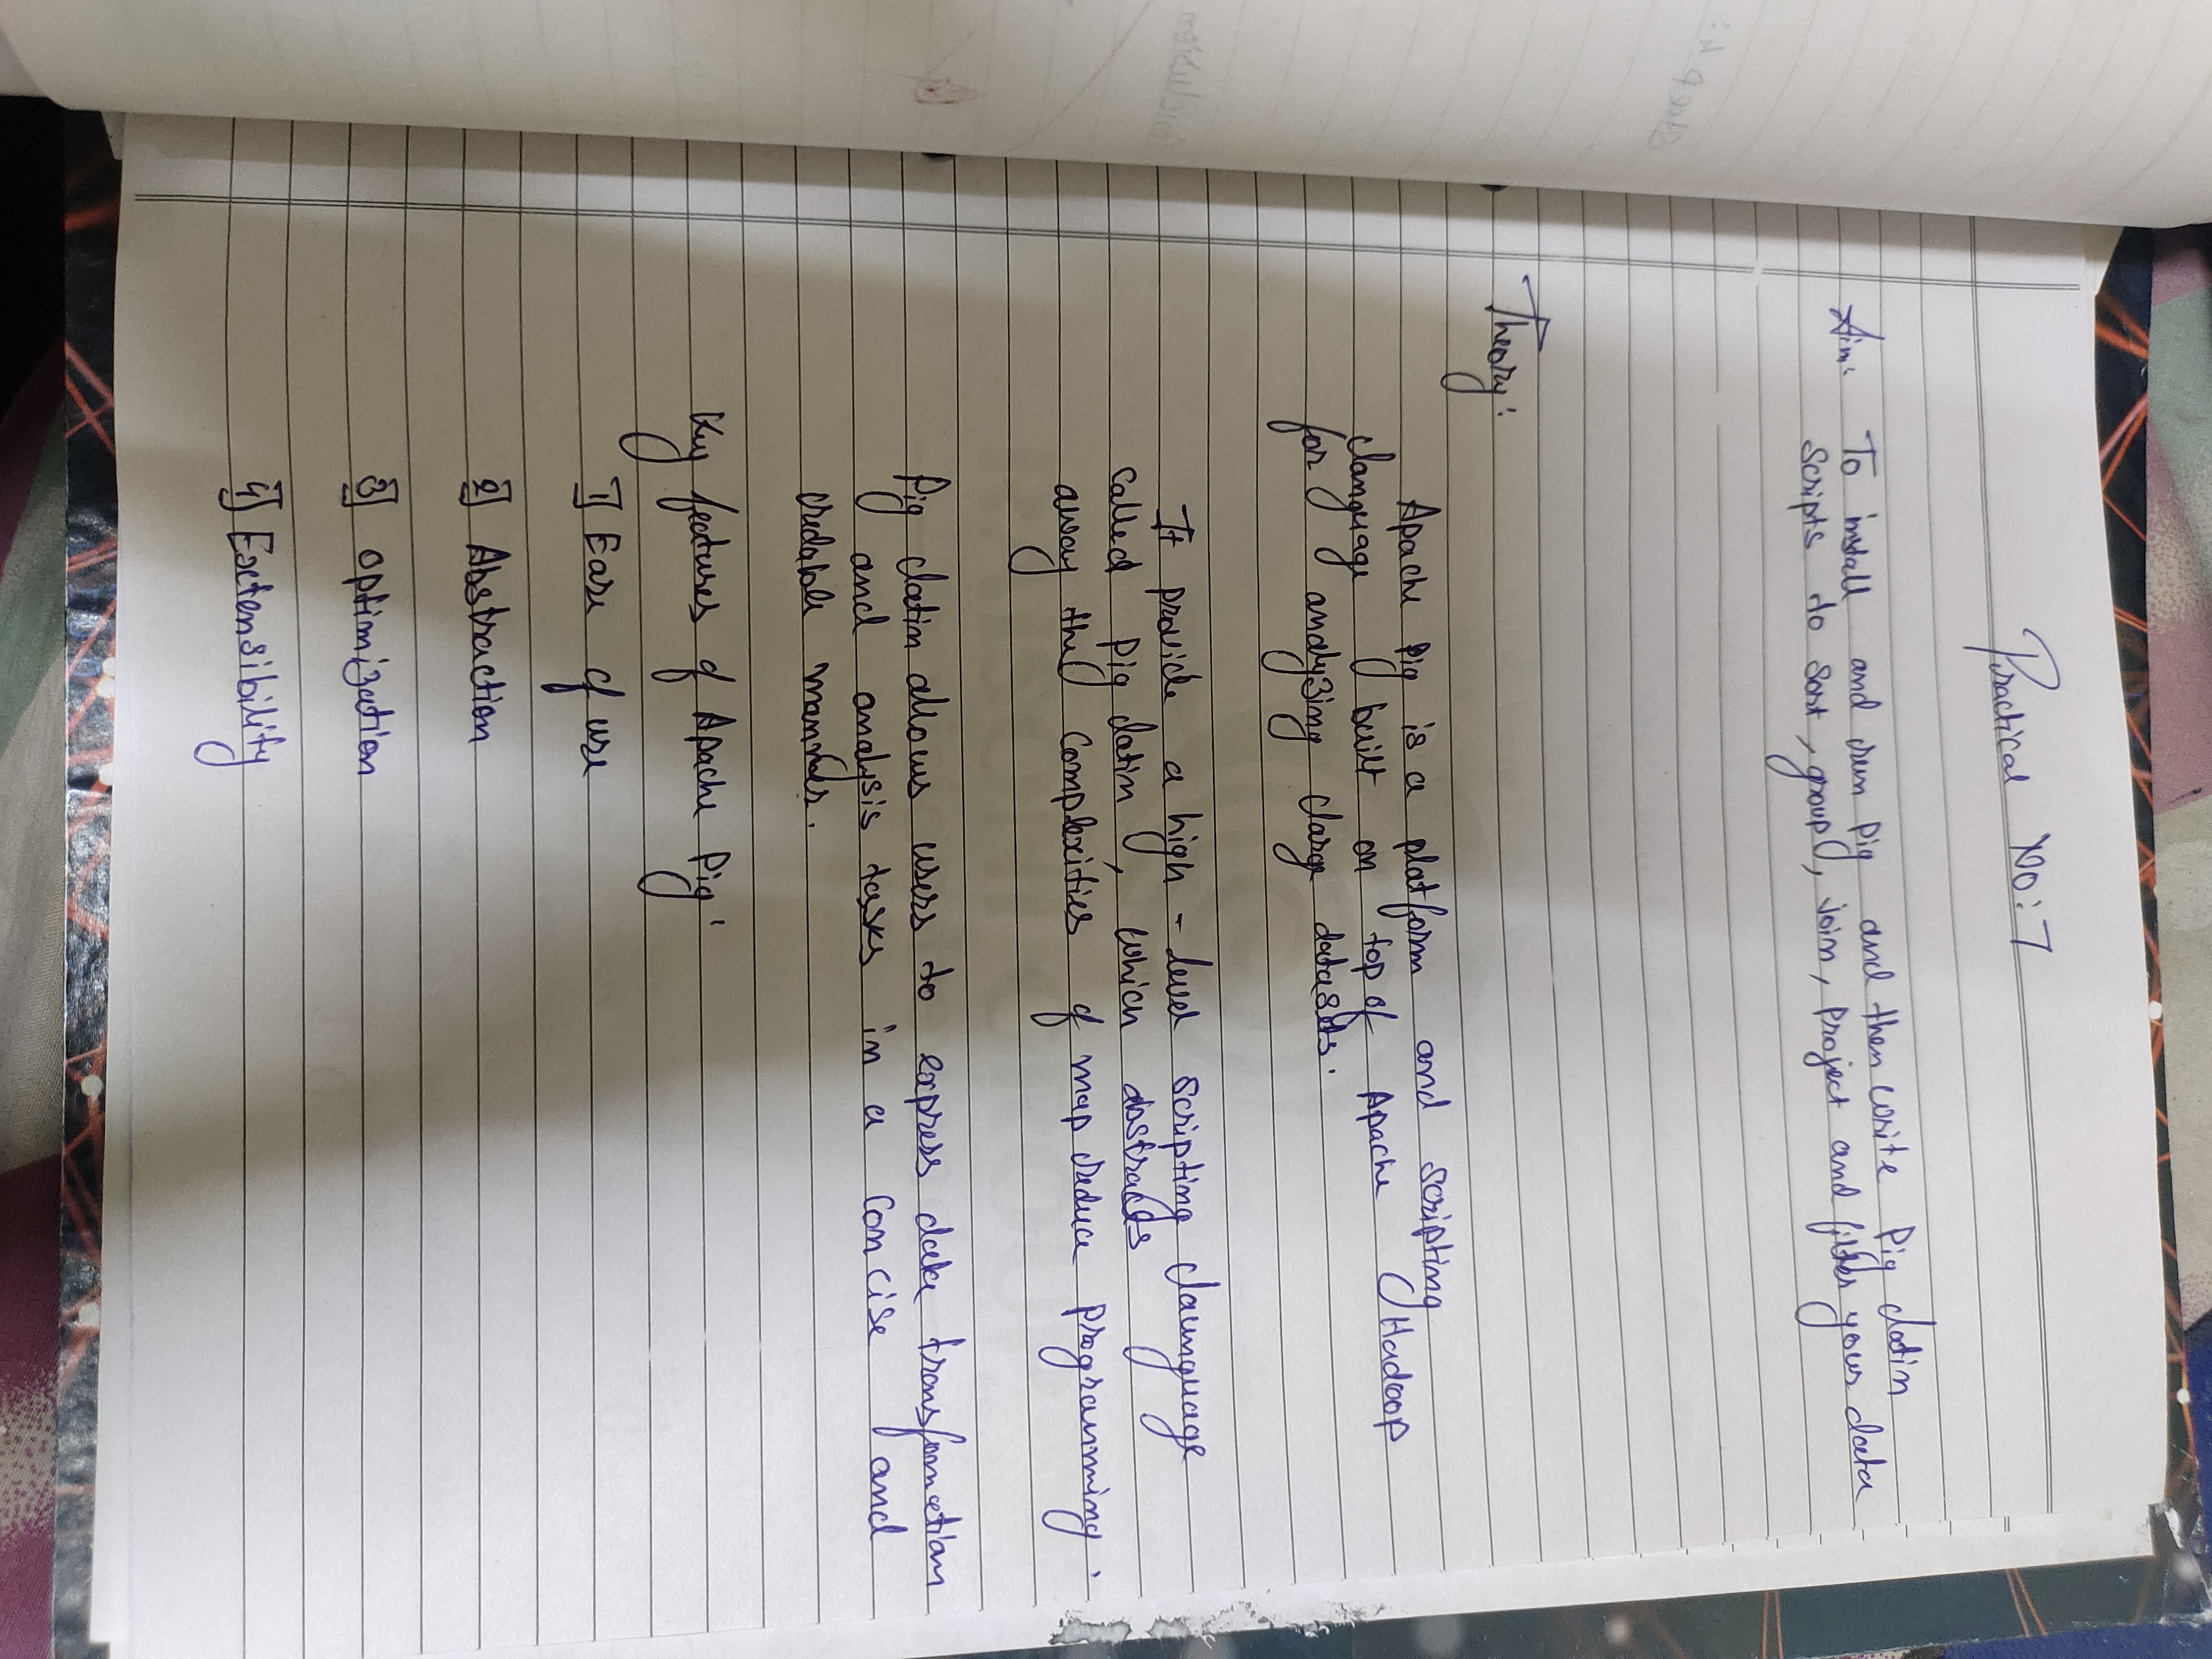 Practical No: 7
Aim: To install and run Pig and then write Pig latin
scripts to sort, group, join, project and filter your data
Theory:
Apache Pig is a platform and scripting
language built on top of Apache Hadoop
for analyzing large datasets.
It provide a high-level scripting launguage
called Pig latin, which abstracts
away the complexities of map reduce programming.
Pig latin allows users to express data transformation
and analysis tasks in a concise and
redable manner.
Key features of Apache Pig:
1] Ease of use
2] Abstraction
3] Optimization
4] Extensibility
Step 4:
Conclusion
RAISONI GROUP